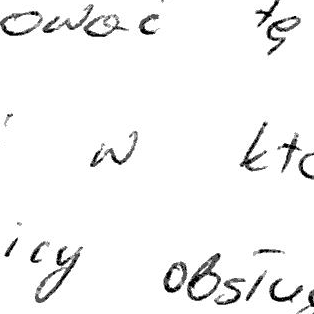 ować tę
w któ
icy obsłu